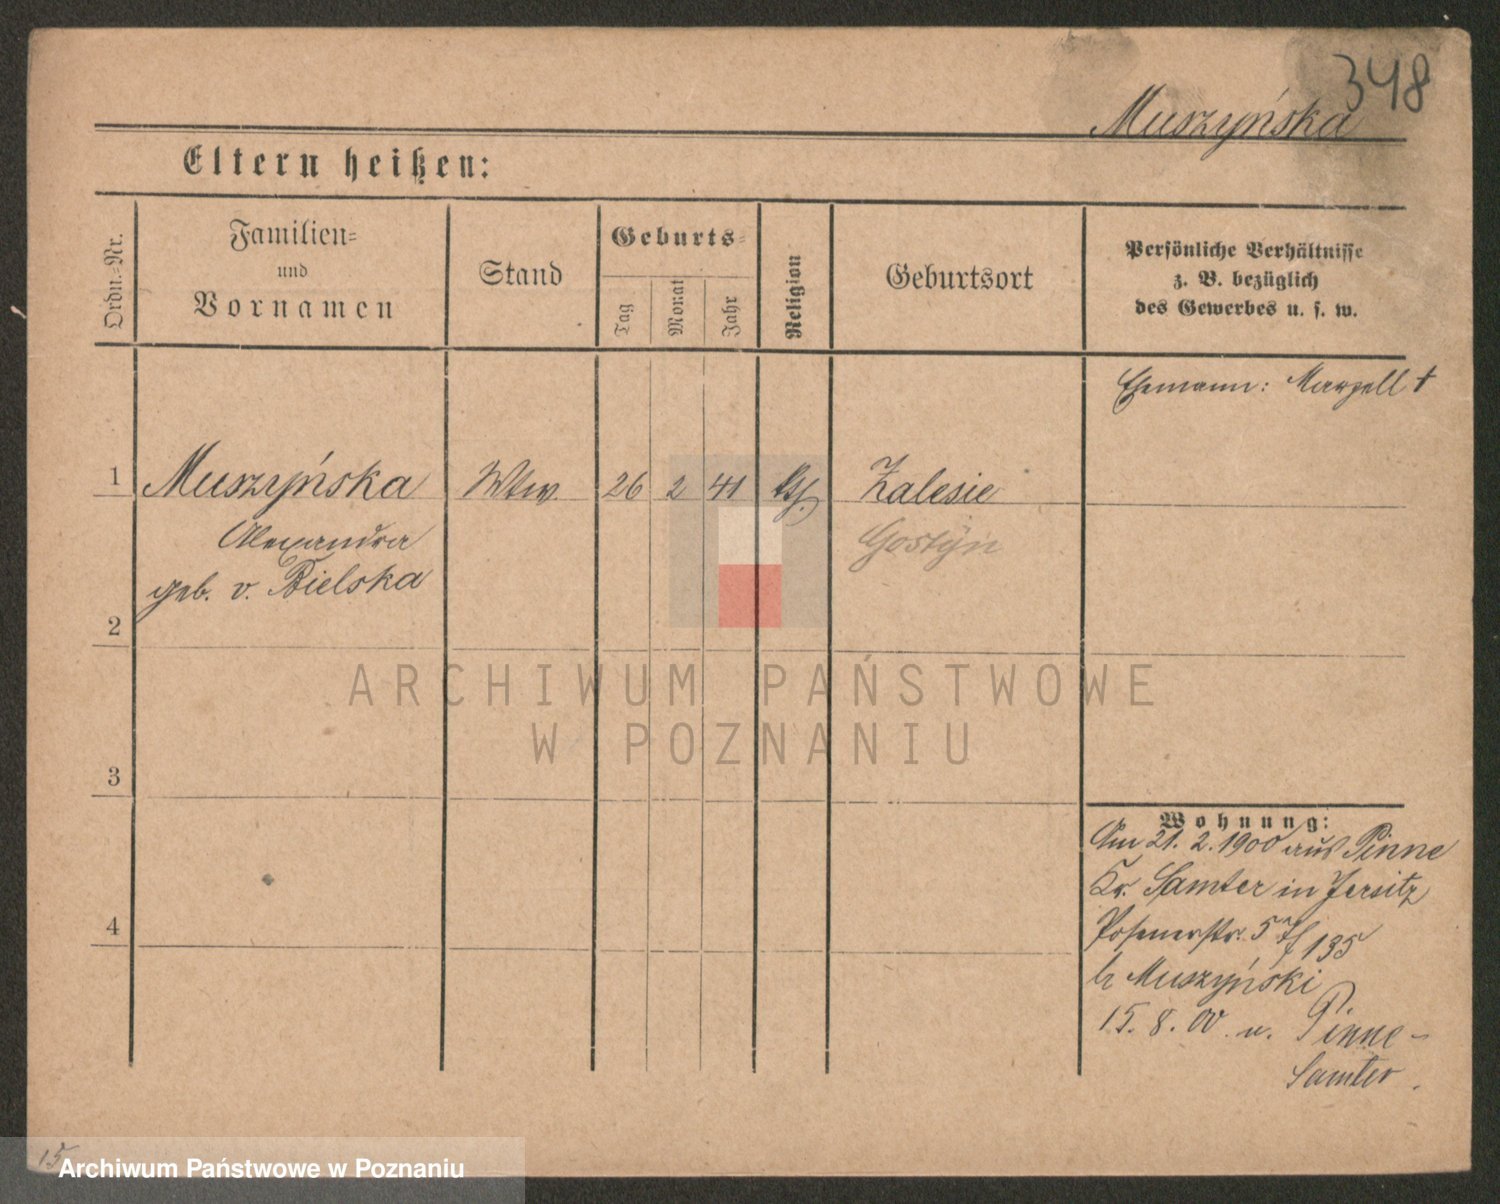 348
Muszyńska
Eltern heißen:
Ordn.-Nr.
Familien-
und
Vornamen
Stand
Geburts-
Tag
Monat
Jahr
Religion
Geburtsort
Persönliche Verhältnisse
z. B. bezüglich
des Gewerbes u. s. w.
Ehemann: Marzell †
1 Muszyńska Wtw 26 2 41 Zalesie
Alexandra Gostyn
geb. v. Bielska
2
ARCHIWUM PAŃSTWOWE
W POZNANIU
3
Wohnung:
Am 21. 2. 1900 aus Pinne
Kr. Samter in Jersitz
4
Posenerstr. 57 135
b Muszyński
15. 8. 00 n. Pinne -
Samter.
15
Archiwum Państwowe w Poznaniu